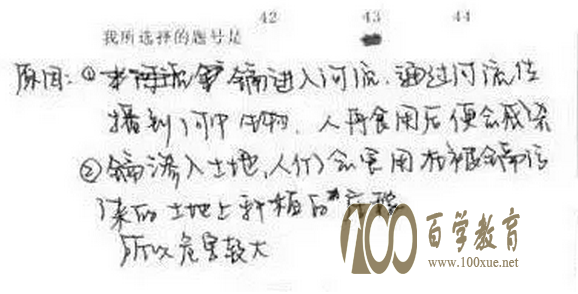 42 43 44
我所选择的题号是
原因:①镉进入河流.通过河流传
播到河中生物,人再食用后便会感染
②镉渗入土地,人们会食用在被镉污
染的土地上种植的
所以危害较大
100 百学教育
www.100xue.net